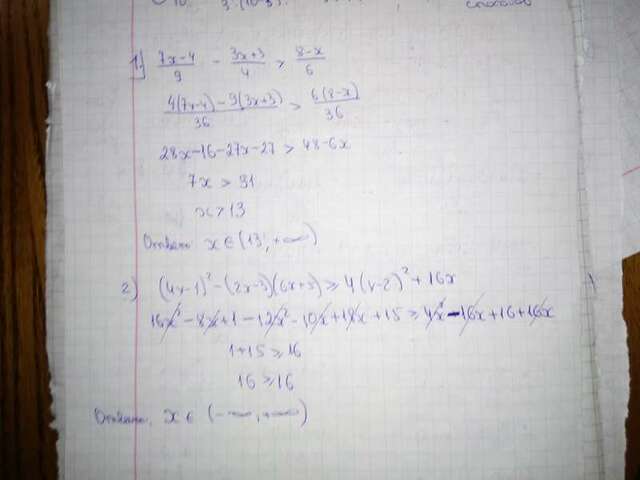 1) (7x-4)/9 - (3x+3)/4 > (8-x)/6
(4(7x-4) - 9(3x+3))/36 > (6(8-x))/36
28x-16-27x-27 > 48-6x
7x > 91
x > 13
x ∈ (13; +∞)
2) (4x-1)² - (2x-3)(6x+5) ≥ 4(x-2)² + 16x
16x² - 8x + 1 - 12x² - 10x + 18x + 15 ≥ 4x² - 16x + 16 + 16x
1+15 ≥ 16
16 ≥ 16
x ∈ (-∞; +∞)